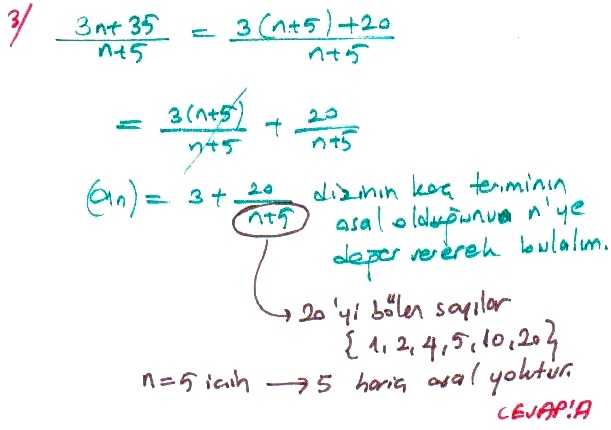 3/ (3n+35)/(n+5) = (3(n+5)+20)/(n+5)
= 3(n+5)/(n+5) + 20/(n+5)
(an) = 3 + 20/(n+5) dizinin kaç teriminin
asal olduğunu n'ye
değer vererek bulalım.
20'yi bölen sayılar
{1, 2, 4, 5, 10, 20}
n=5 için → 5 hariç asal yoktur.
CEVAP:A